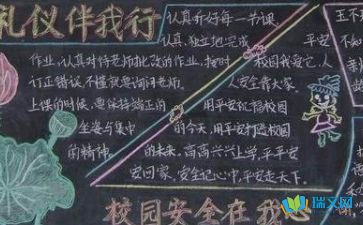 礼仪伴我行
认真听好每一节课
认真、独立地完成
作业,认真对待老师批改的作业,按时
订正错误,不懂就要询问老师。
上课的时候,要保持端正的
坐姿与集中
的精神。
平安
校园我爱它,人
人安全靠大家。
用平安祝福校园
的今天,用平安打造校园
的未来。高高兴兴上学,平平安
安回家,安全记心中,平安走天下。
校园安全在我心
玉不
瑞文网